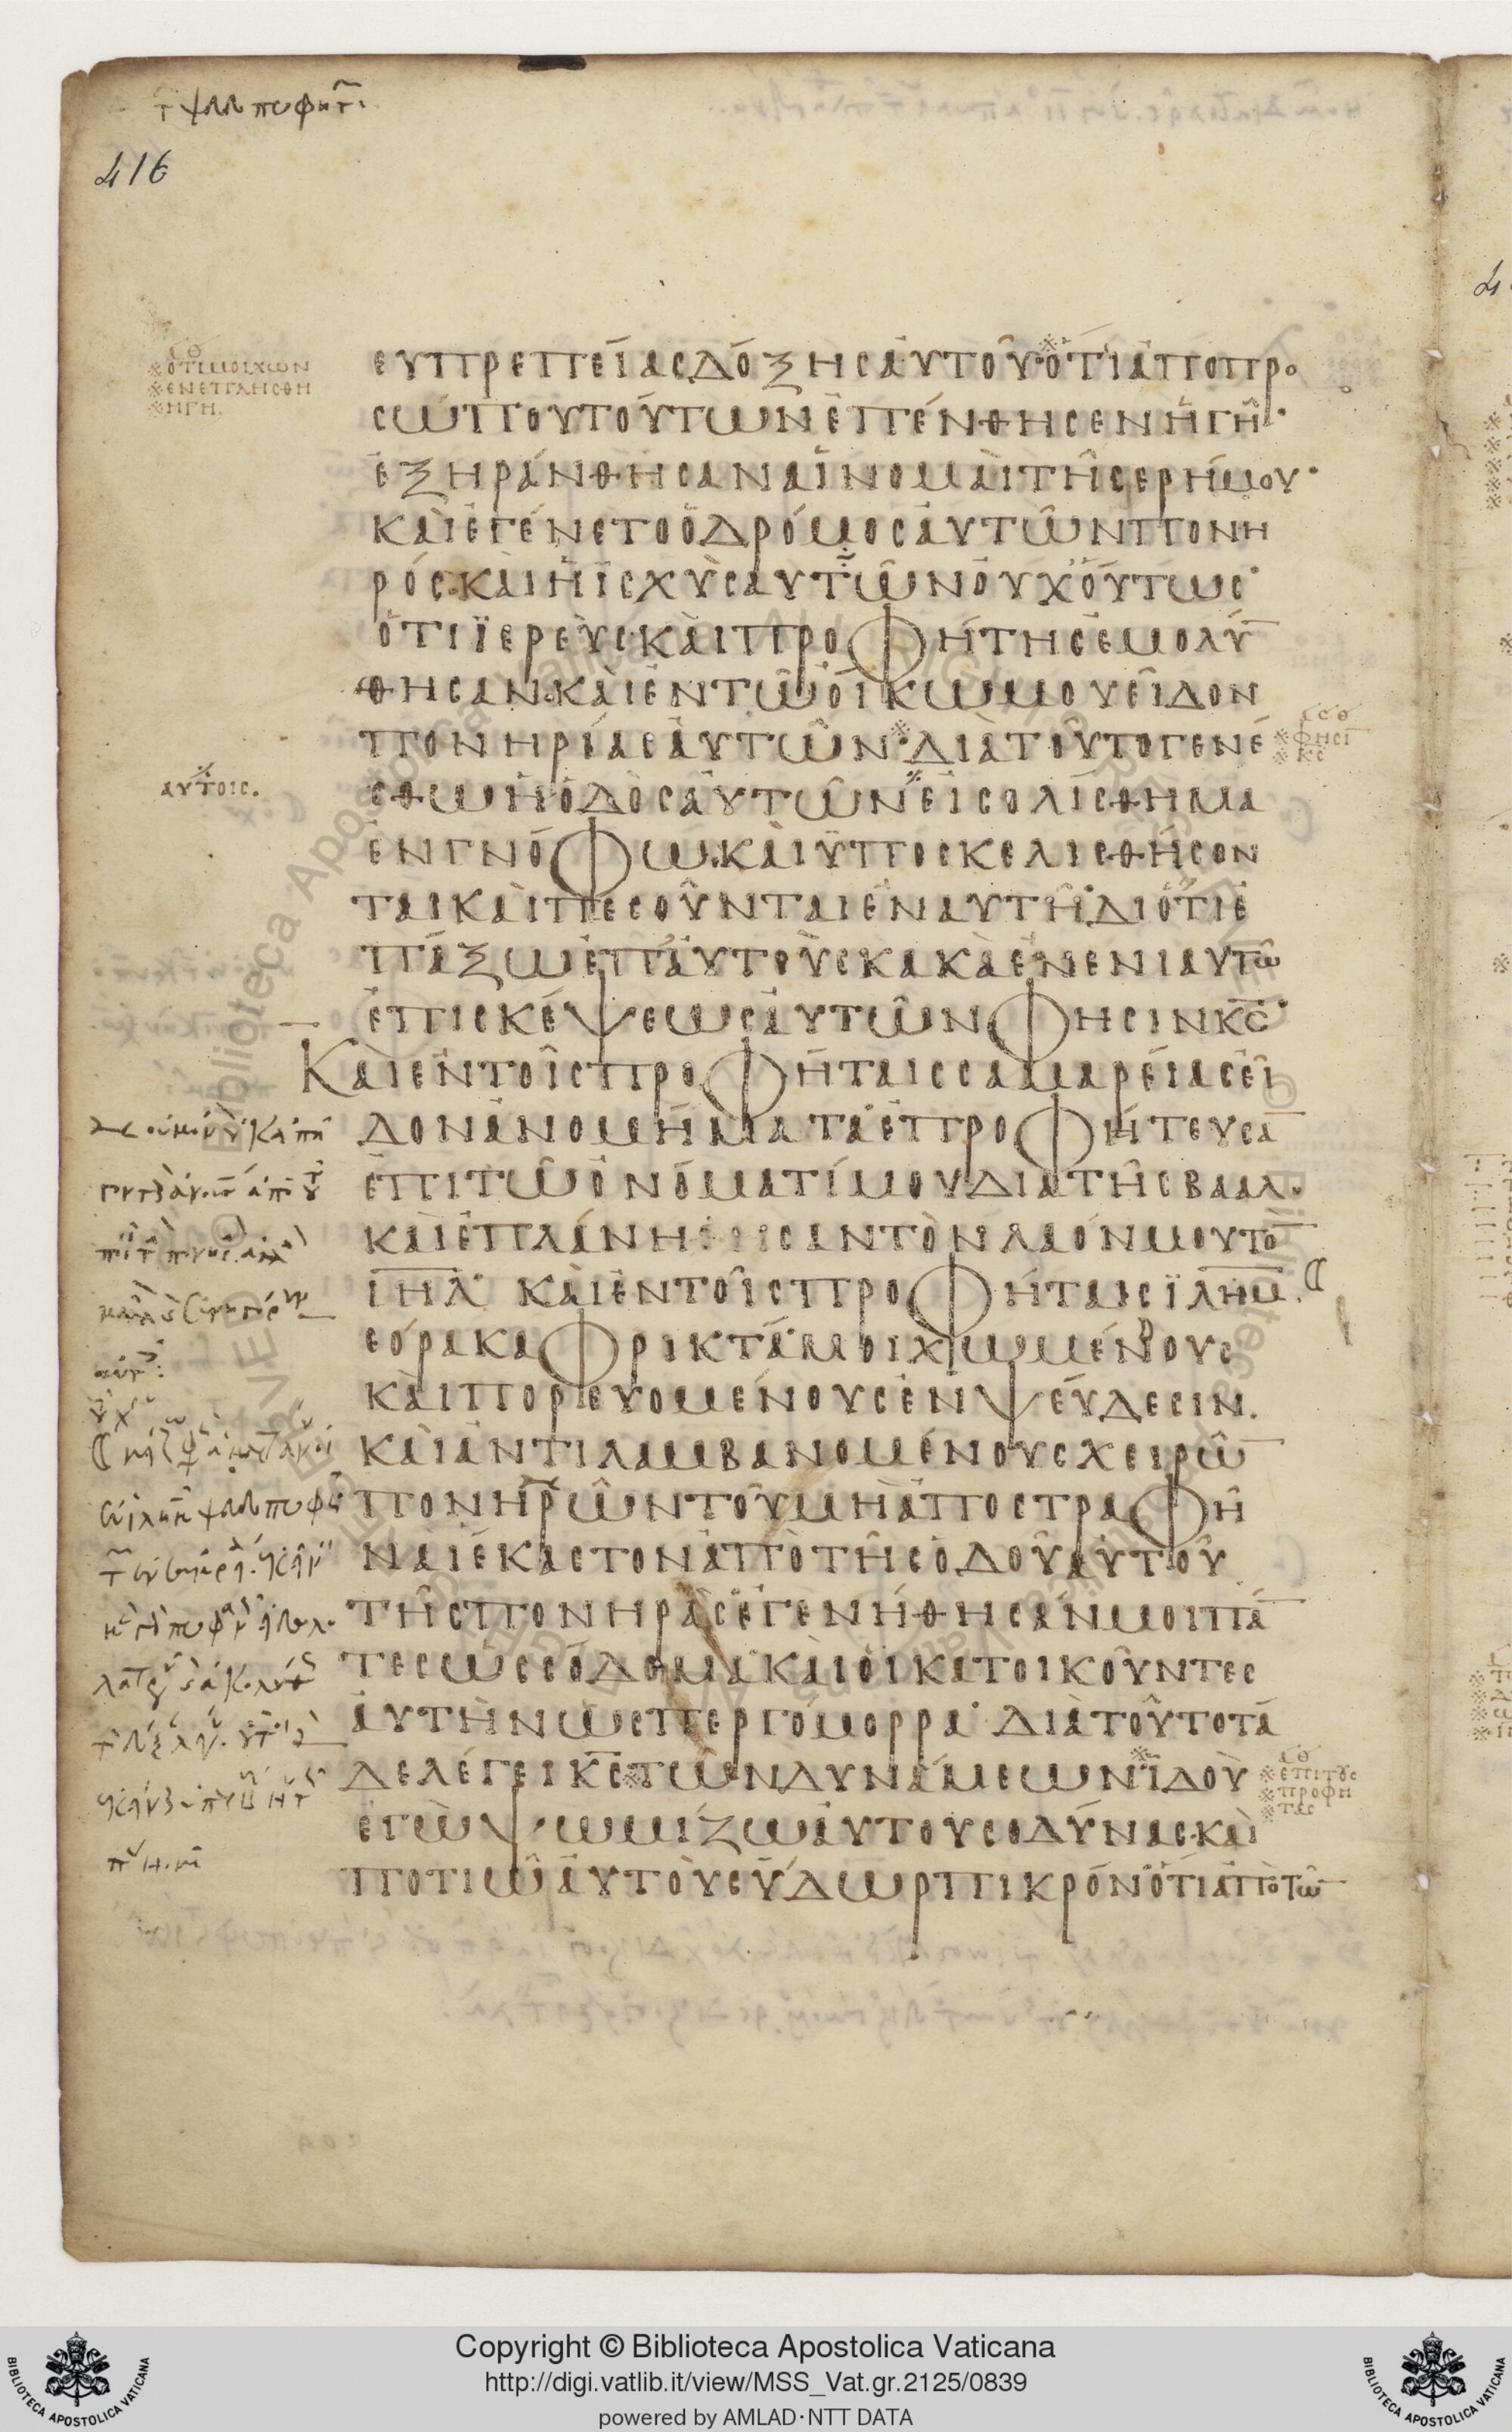 416
ευπρεπείας δόξης αὐτοῦ· ὅτι ἀπὸ προ
σώπου τούτων ἐπένθησεν ἡ γῆ·
ἐξηράνθησαν αἱ νομαὶ τῆς ερήμου·
καὶ ἐγένετο ὁ δρόμος αὐτῶν πονη
ρός· καὶ ἡ ἰσχὺς αυτῶν οὐχ οὕτως·
ὅτι ϊερεὺς· καὶ προφήτης ἐμολύ
θησαν· καὶ ἐν τῶ οἴκω μου εἶδον
πονηρίας αὐτῶν· διὰ τοῦτο γενέ
σθω ἡ ὁδὸς αὐτῶν εἰς ολίσθημα
ἐν γνόφω· καὶ ὑποσκελισθήσον
ται καὶ πεσοῦνται ἐν αυτῆ· διότι ἐ
πάξω ἐπ' αὐτοὺς κακὰ ἐν ενιαυτῶ
ἐπισκέψεως αὐτῶν φησιν κ̅ς̅·
Καὶ ἐν τοῖς προφήταις σαμαρείας εἶ
δον ἀνομήματα· ἐπροφήτευσα̅
ἐπὶ τῶ ὀνόματί μου διὰ τῆς βααλ·
καὶ ἐπλάνησαν τὸν λαόν μου το̅
ι̅η̅λ̅· καὶ ἐν τοῖς προφήταις ϊ̅λ̅η̅μ̅.
εόρακα φρικτά· μοιχωμένους
καὶ πορευομένους ἐν ψεύδεσιν.
καὶ ἀντιλαμβανομένους χειρῶ̅
πονηρῶν τοῦ μὴ ἀποστραφῆ
ναι ἕκαστον ἀπὸ τῆς ὁδοῦ αὐτοῦ
τῆς πονηρᾶς· ἐγενήθησάν μοι πά̅
τες ὡς σόδομα· καὶ οἱ κατοικοῦντες
αὐτὴν ὥσπερ γόμορρα· διὰ τοῦτο τά
δε λέγει κ̅ς̅ τῶν δυνάμεων· ἰδοὺ
ἐγὼ ψωμίζω αὐτους οδύνας· καὶ
ποτιῶ αὐτοὺς ὕδωρ πικρόν· ὅτι ἀπὸ τῶ̅
σ̅ θ̅
※ οτι μοιχων
※ ενεπλησθη
※ η γη.
αυτοις.
※ φησι
※ κ̅ς̅
σ̅ θ̅
※ επι τους
※ προφη
※ τας
Copyright © Biblioteca Apostolica Vaticana
http://digi.vatlib.it/view/MSS_Vat.gr.2125/0839
powered by AMLAD·NTT DATA
BIBLIOTECA APOSTOLICA VATICANA
BIBLIOTECA APOSTOLICA VATICANA